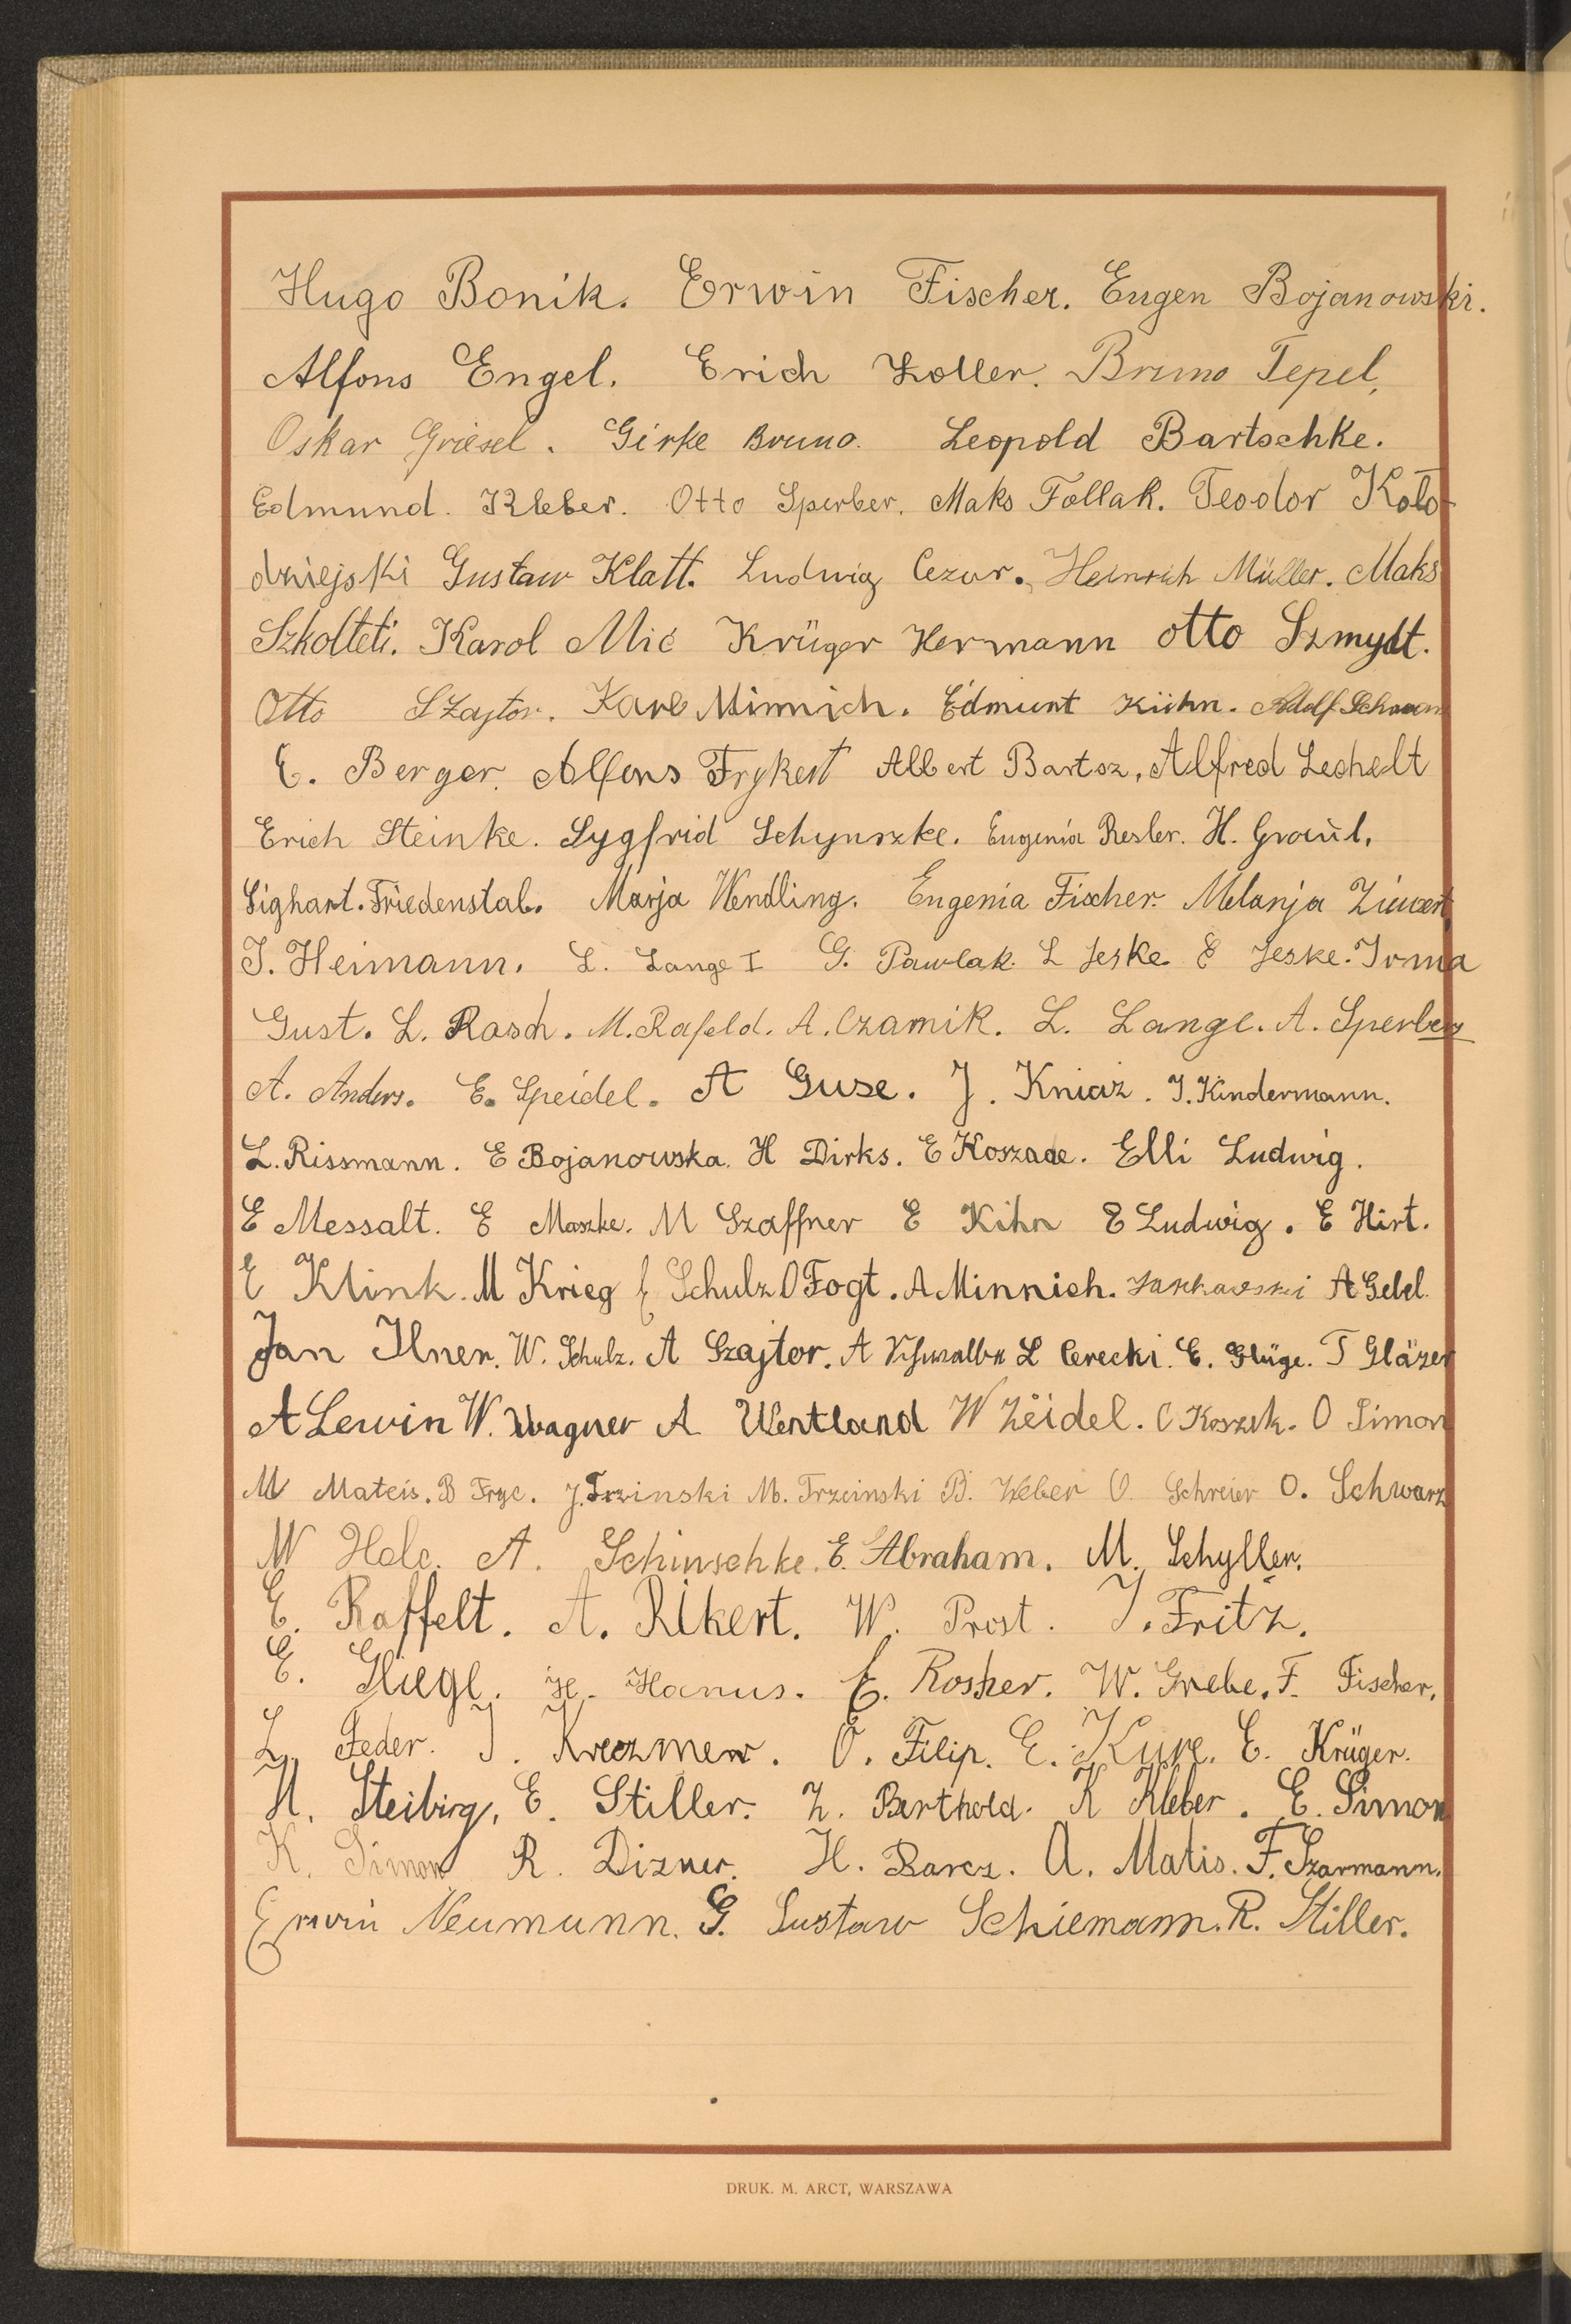 Hugo Bonik. Erwin Fischer. Eugen Bojanowski.
Alfons Engel. Erich Zoller. Bruno Tepel,
Oskar Griesel. Girke Bruno. Leopold Bartschke.
Edmund. Kleber. Otto Sperber. Maks Follak. Teodor Koło-
dziejski Gustaw Klatt. Ludwig Cezar. Heinrich Müller. Maks
Szkolteti. Karol Mić Krüger Hermann Otto Szmydt.
Otto Szajtor. Karl Minnich. Edmunt Kühn. Adolf
E. Berger. Alfons Frykert Albert Bartsz, Alfred Lechelt
Erich Steinke. Sygfrid Schynszke. Eugenia Resler. H. Graül.
Sighart. Friedenstab. Marja Wendling. Eugenia Fischer. Melanja
I. Heimann. L. Lange I G. Pawlak. L Jeske E Jeske. Irma
Gust. L. Rasch. M. Rafeld. A. Czarnik. L. Lange. A. Sperber
A. Anders. E. Speidel. A Guse. J. Kniaz. I. Kindermann.
L. Rissmann. E Bojanowska. H Dirks. E Koszade. Elli Ludwig.
E Messalt. E Maszke. M Szaffner E Kihn E Ludwig. E Hirt.
E Klink. M Krieg E Schulz O Fogt. A Minnich. A Gebel.
Jan Ilner. W. Schulz. A Szajtor. A L Cerecki. E. Glüge. T Gläzer
A Lewin W. Wagner A Wentland W Zeidel. O Koszek. O Simon
M Mateis. B Fryc. J. Trzinski M. Trzcinski B. Weber O. Schreier O. Schwarz
W Holc. A. Schinschke. E. Abraham. M. Schyller.
E. Raffelt. A. Rikert. W. Prost. J. Fritz.
E. Gliegl. H. Hanus. E. Rosher. W. Grebe. F. Fischer.
L. Feder. J. Kreczmer. O. Filip. E. Kure. E. Krüger.
H. Steibirg, E. Stiller. Z. Berthold. K Kleber. E. Simon
K. Simon R. Dizner. H. Barcz. A. Matis. F. Szarmann.
Erwin Neumunn. G. Gustaw Schiemann. R. Stiller.
DRUK. M. ARCT, WARSZAWA